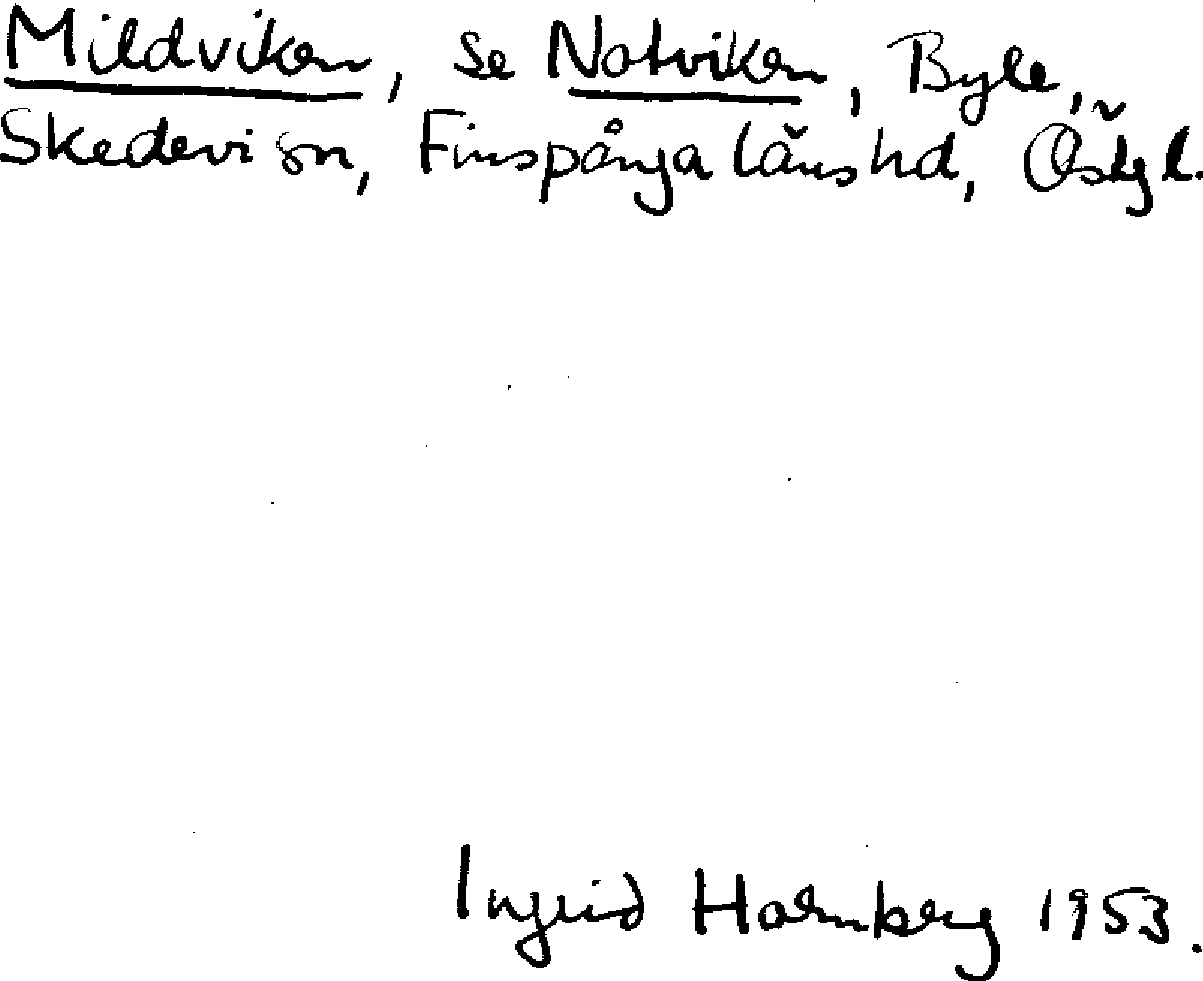 Mildviken, se Notviken, Byle,
Skedevi sn, Finspånga länshd, Östgl.
Ingrid Holmberg 1953.